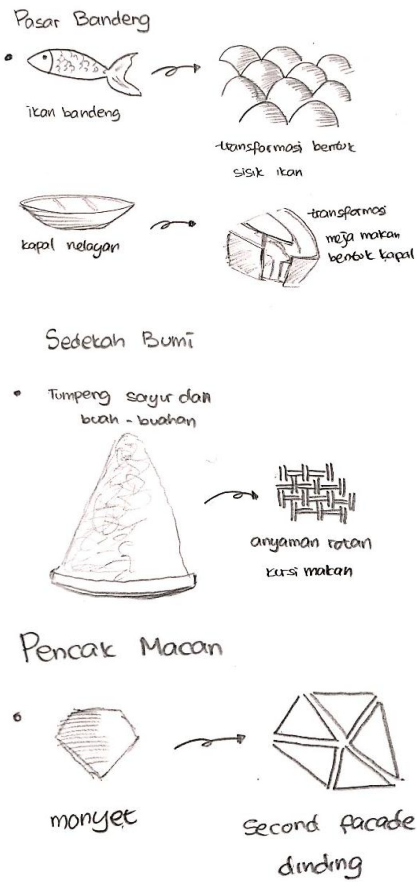 Pasar Bandeng
ikan bandeng
transformasi bentuk
sisik ikan
kapal nelayan
transformasi
meja makan
bentuk kapal
Sedekah Bumi
Tumpeng sayur dan
buah - buahan
anyaman rotan
kursi makan
Pencak Macan
monyet
Second facade
dinding